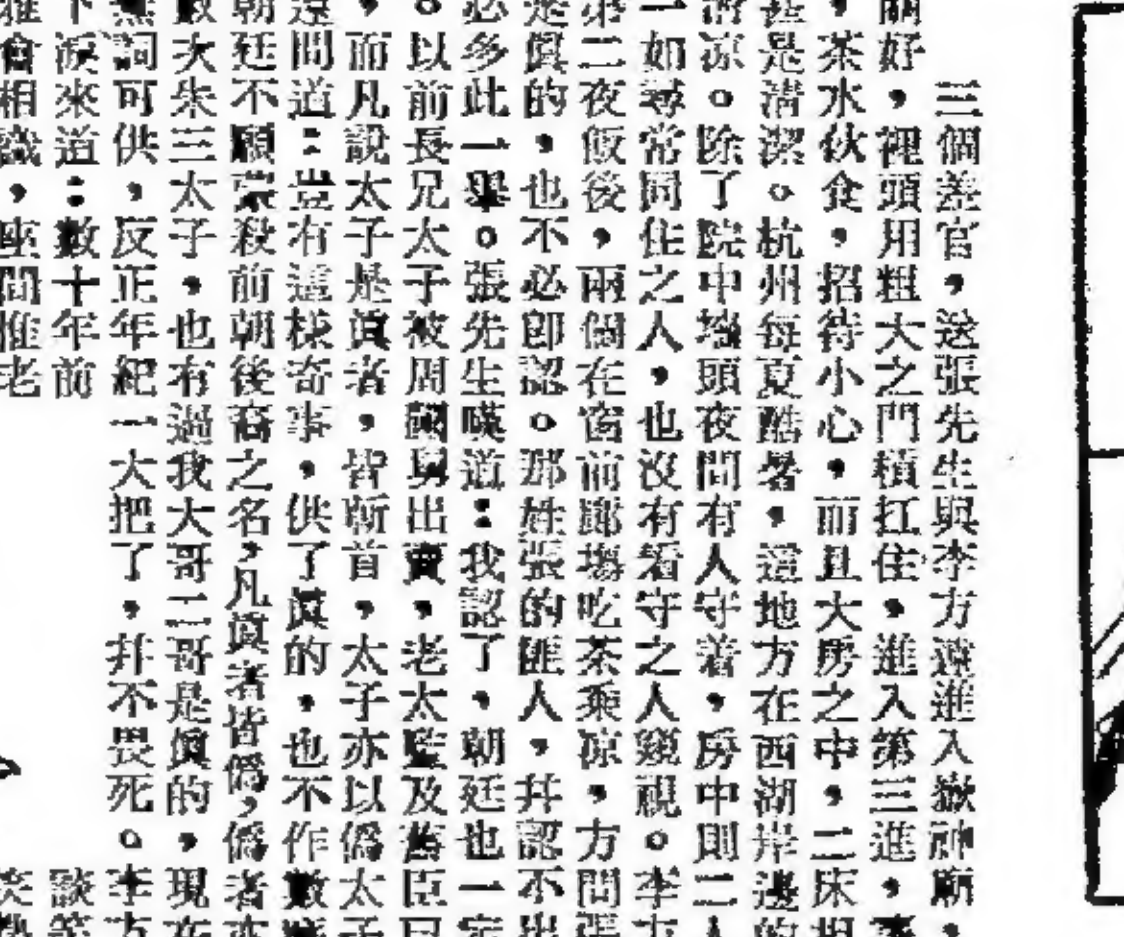 三個差官，送張先生與李方遠進入嶽神廟，
關好，裡頭用粗大之門積扛住，進入第三進，
，茶水伙食，招待小心，而且大房之中，二床相
甚是清潔。杭州每夏酷暑，這地方在西湖岸邊的
清凉。除了院中墻頭夜間有人守着，房中則二人
一如尋常同住之人，也沒有看守之人窺視。李方
第二夜飯後，兩個在窗前廊塲吃茶乘凉，方問張
是眞的，也不必即認。那姓張的匪人，幷認不出
必多此一舉。張先生嘆道：我認了，朝廷也一定
。以前長兄太子被周國舅出賣，老太監及舊臣曰
，而凡說太子是眞者，皆斬首，太子亦以僞太子
遠問道：豈有這樣奇事，供了眞的，也不作數
朝廷不願蒙殺前朝後裔之名，凡眞者皆僞，僞者亦
數次朱三太子，也有過我大哥二哥是眞的，現在
無詞可供，反正年紀一大把了，幷不畏死。李方
下淚來道：數十年前
談笑
雖會相識，座間惟老
笑